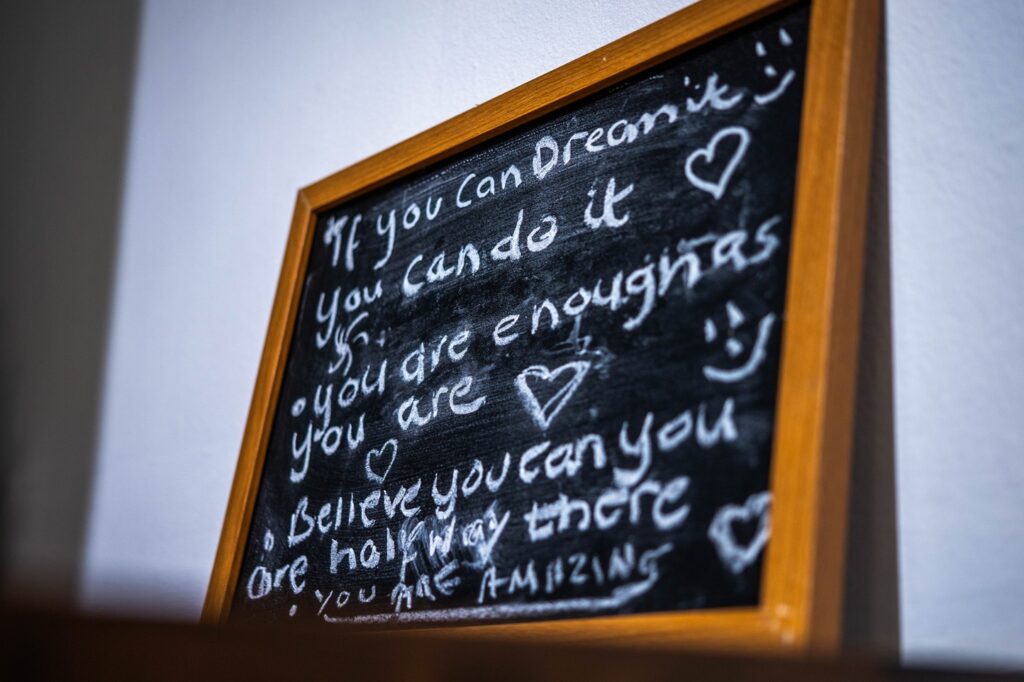 If you Can Dream it
you can do it
you are enough as
you are
Believe you can you
are half way there
you ARE AMAZING